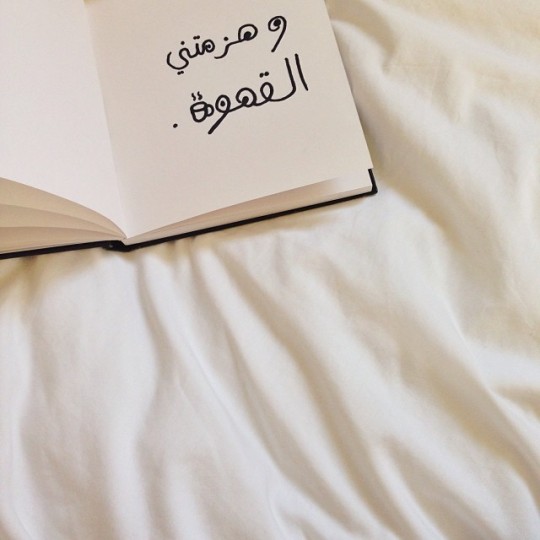 و هزمتني
القهوة.